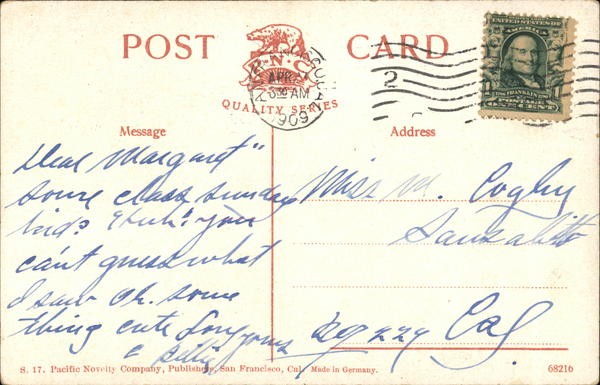 POST CARD
P.N.C.
QUALITY SERIES
SAN FRANCISCO, CAL.
APR
3 30 AM
1909
2
UNITED STATES OF AMERICA
FRANKLIN
POSTAGE
ONE CENT
Message
Address
Dear Margaret"
Some class Sunday
kid? Huh! you
can't guess what
I saw Oh. some
thing cute
Miss M. Cogley
Sausalito
Box 229 Cal
S. 17. Pacific Novelty Company, Publishers, San Francisco, Cal. Made in Germany.
68216